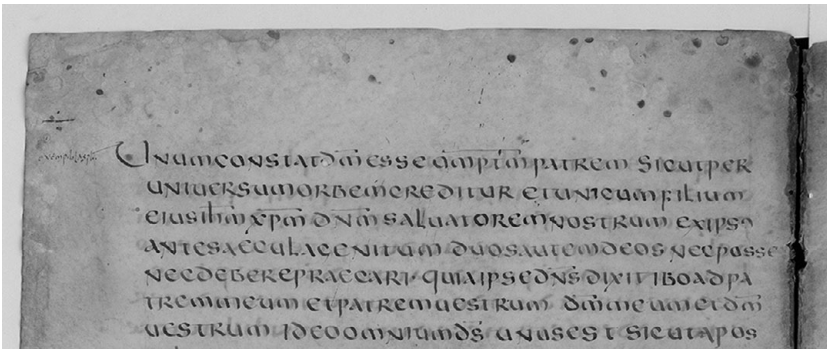 UNUM CONSTAT DM̄ ESSE OMPTM̄ PATREM SICUT PER
UNIUERSUM ORBEM CREDITUR ET UNICUM FILIUM
EIUS IHM̄ XPM̄ DNM̄ SALUATOREM NOSTRUM EX IPSO
ANTE SAECULA GENITUM DUOS AUTEM DEOS NEC POSSE
NEC DEBERE PRAECARI· QUIA IPSE DNS̄ DIXIT IBO AD PA
TREM MEUM ET PATREM UESTRUM DM̄ MEUM ET DM̄
UESTRUM IDEO OMNIUM DS̄ UNUS EST SICUT APOS